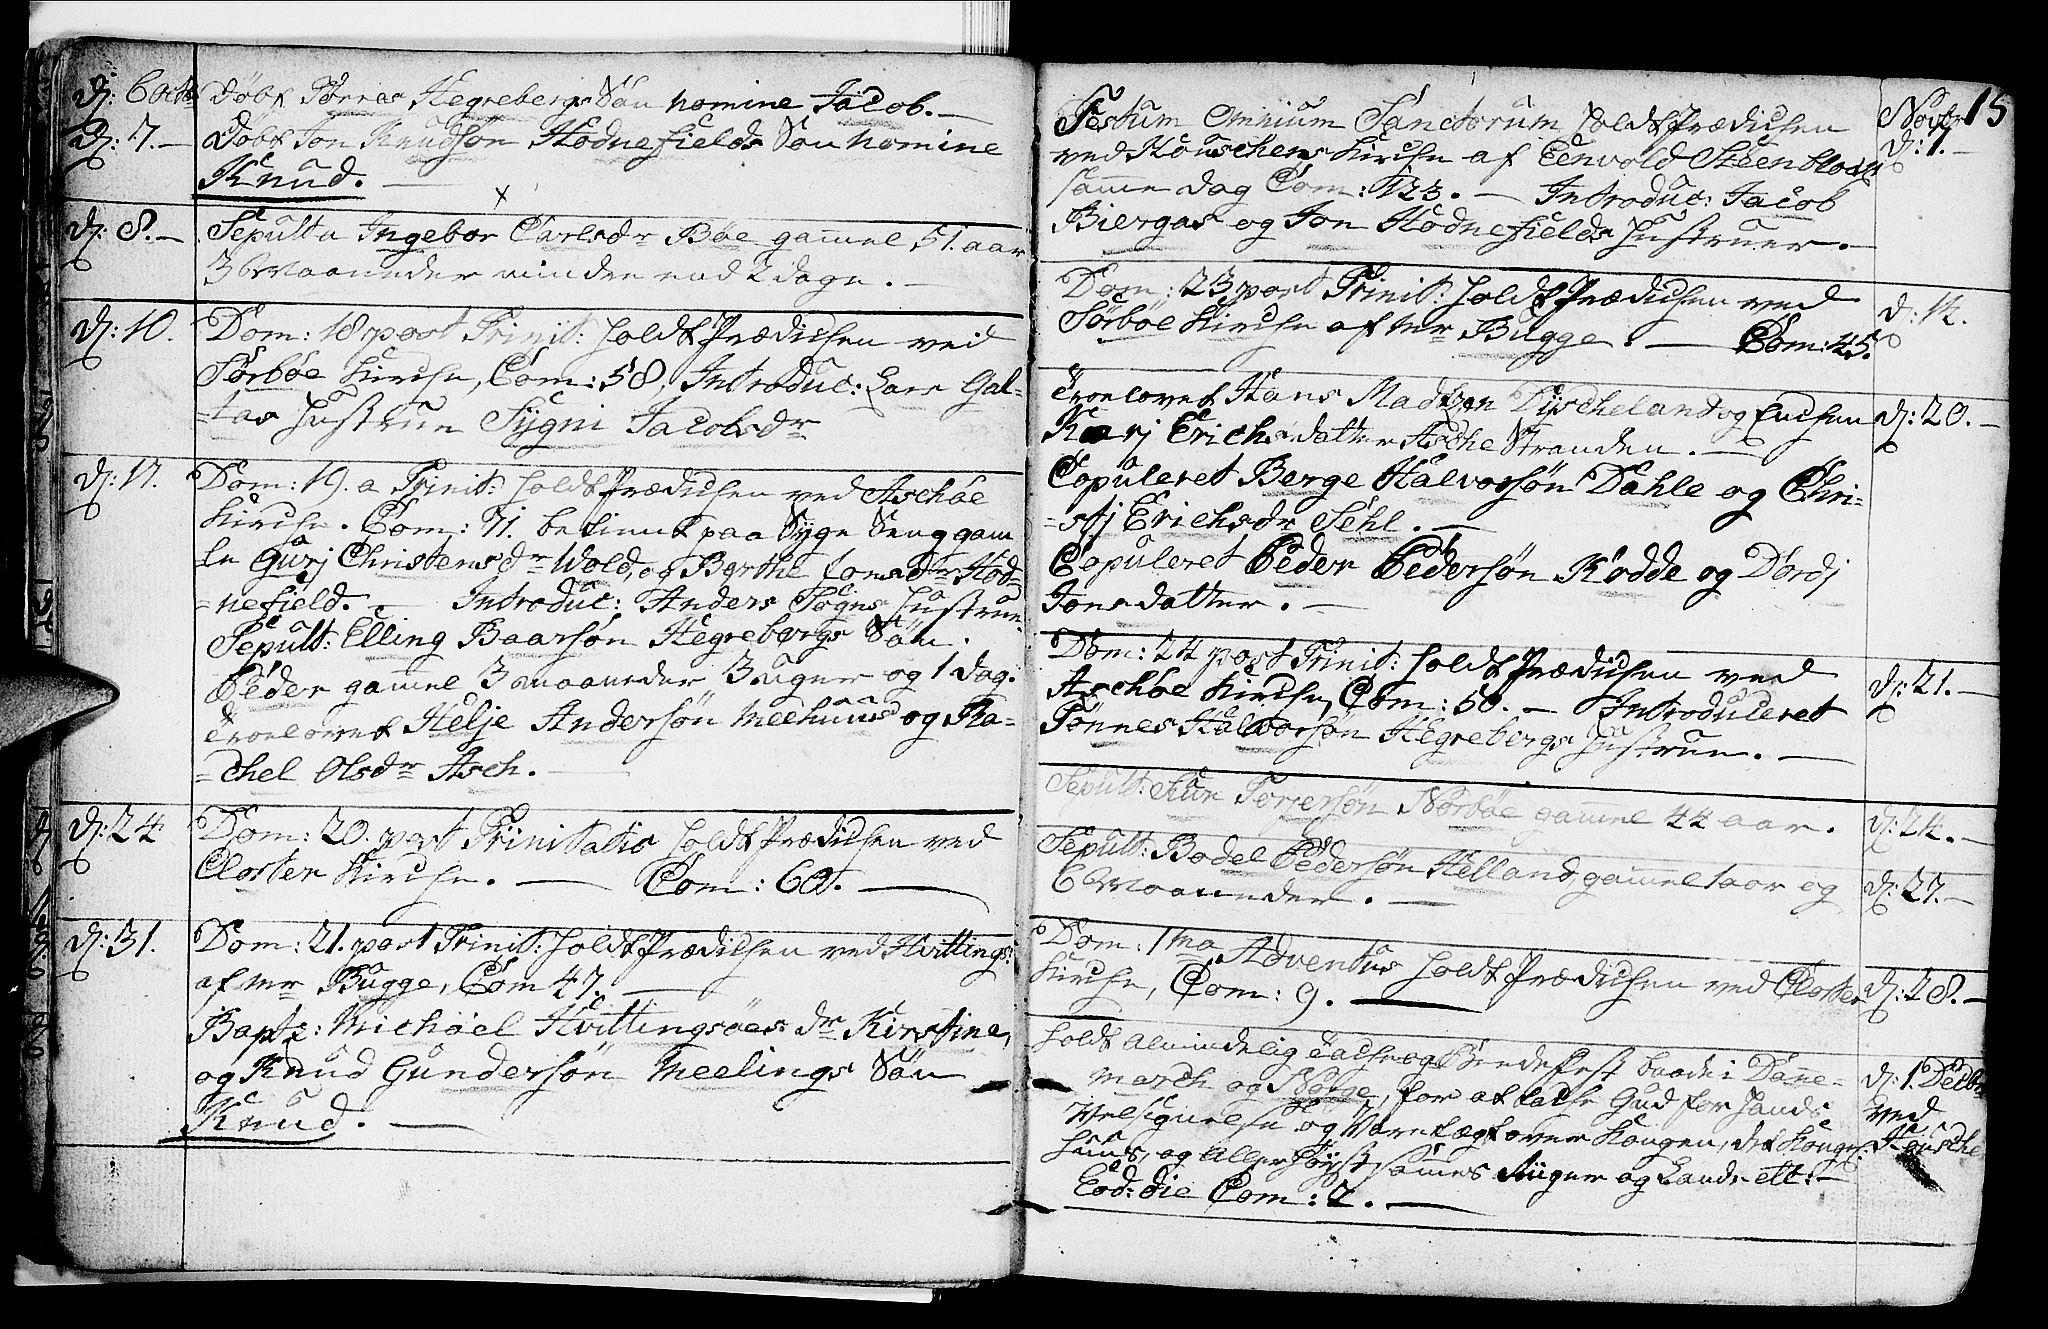 d: 6 octb. Döbt Tørres Hegrebergs Søn nomine Jacob. —
d: 7. — Döbt Jon Knudsøn Hodnefields Søn nomine
Knud. —
d: 8. — Sepulta Ingebor Carlsdr Bøe gammel 51. aar
3 Maaneder mindre end 2 dage. —
d: 10. Dom: 18 post Trinit: holdt Prædichen ved
Sørbøe Kirche, Com: 58, Introduc: Lars Gal-
-tas Hustrue Sygni Jacobsdr
d: 17. Dom: 19. a Trinit: holdt Prædichen ved Aschöe
Kirche. Com: 71. betient paa Syge Seng gam
le Gurj Christensdr Wold, og Berthe Jonsdr Hod-
-nefield. — Introduc: Anders Sognes Hustrue.
Sepult: Elling Baarsøn Hegrebergs Søn
Peder gammel 3 maaneder 3 uger og 1 dag.
Troelovet Helje Andersøn Meehuus og Ra-
-chel Olsdr Asch. —
d: 24 Dom: 20. post Trinitatis holdt Prædichen ved
Closter Kirche. — Com: 60. —
d: 31. Dom: 21. post Trinit: holdt Prædichen ved Hvittings:
af Mr Bugge, Com 47. —
Bapt: Michael Hvittingsöes dr Kirstine,
og Knud Gundersøn Meelings Søn
Knud. —
15
Festum Omnium Sanctorum holdt Prædichen Novbr
ved Houschens Kirche af Eenvold Steenbloch d: 1. —
samme dag Com: 123. — Introduc: Jacob
Biergas og Jon Hodnefields Hustruer. —
Dom: 23 post Trinit: holdt Prædichen ved d: 14.
Sørböe Kirche af Mr Bugge. — Com: 45.
Troelovet Hans Madtzøn Dyscheland og Enchen d: 20. —
Karj Erichsdatter Asche Stranden. —
Copuleret Berge Halvorsøn Dahle og Chri-
-stj Erichsdr Sehl. —
Copuleret Peder Pedersøn Kodde og Dordj
Jonsdatter. —
Dom: 24 post Trinit: holdt Prædichen ved d: 21. —
Aschöe Kirche, Com: 50. — Introduceret
Tönnes Halvorsøn Hegrebergs Hustrue. —
Sepult: Torjersøn Nörböe gammel 44 aar. d: 24. —
Sepult: Bodel Pedersøn Helland, gammel 1 aar og d: 27. —
6 Maaneder. —
Dom: 1ma Adventus holdt Prædichen ved Closter d: 28. —
Kirche, Com: 9. —
holdt almindelig Tache og Bönde fest baade i Danne- d: 1. Decbr
march og Norge, for at tache Gud for hands ved
Velsignelse og Varetægt over Kongen, det Kongl: Housche
huus, og allerhöystsammes Riiger og Lande etc: —
Eod: die Com: 2. —